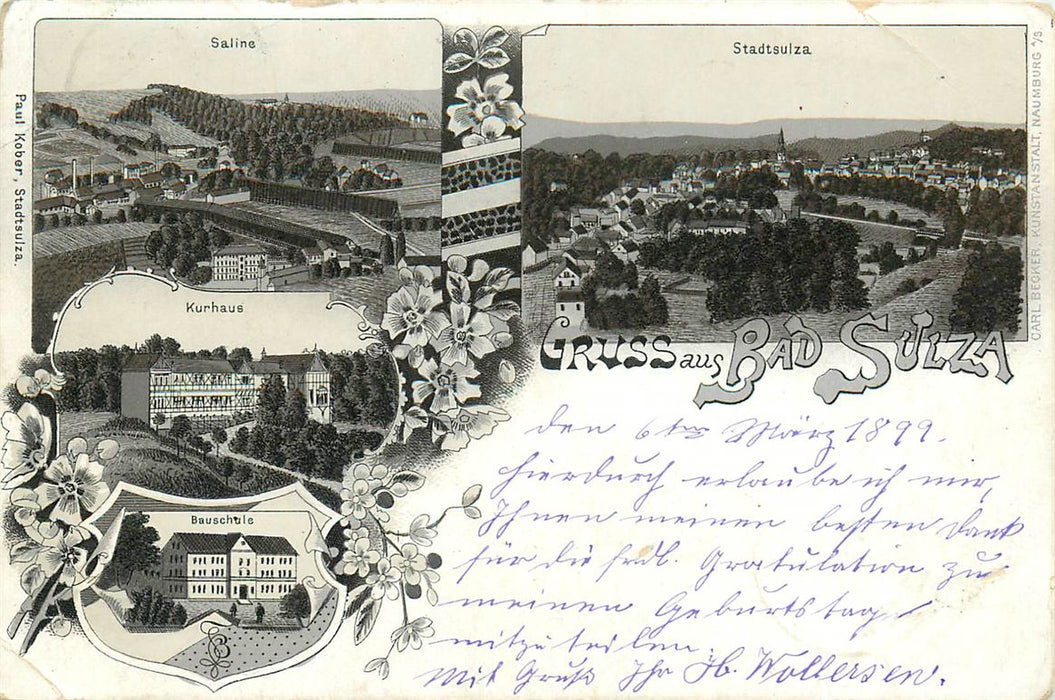 Saline
Stadtsulza
Paul Kober, Stadtsulza.
CARL BECKER, KUNSTANSTALT, NAUMBURG a/S.
Kurhaus
GRUSS aus BAD SULZA
Bauschule
den 6ten März 1899.
Hierdurch erlaube ich mir,
Ihnen meinen besten Dank
für die frdl. Gratulation zu
meinem Geburtstag
mitzuteilen.
Mit Gruß Ihr Hb. Wollersen.